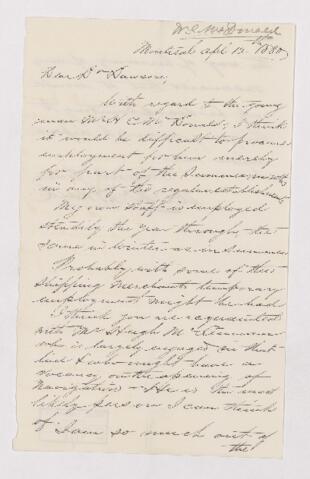 W. C. McDonald
Montreal Apl 13th 1880
Dear Dr Dawson,
With regard to the young
man Mr H C McDonald, I think
it would be difficult to procure
employment for him merely
for part of the Summer months
in any of the regular establishments
My own staff is employed
steadily the year through the
same in Winter as in Summer
Probably with some of the
Shipping Merchants temporary
employment might be had
I think you are acquainted
with Mr Hugh McLennan
who is largely engaged in that
line & who might have a
vacancy on the opening of
Navigation - He is the most
likely person I can think
of I am so much out of
the